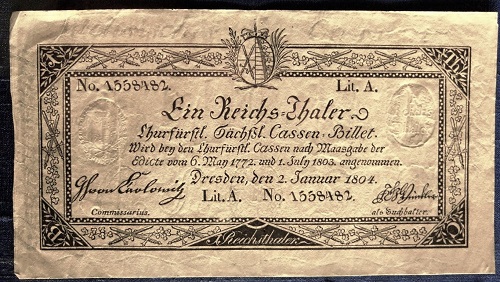 No. 1558482. Lit. A.
Ein Reichs-Thaler.
Churfürstl. Sächsl. Cassen-Billet.
Wird bey den Churfürstl. Cassen nach Maasgabe der
Edicte vom 6. May 1772. und 1. July 1803. angenommen.
Dresden, den 2. Januar 1804.
Lit. A. No. 1558482.
Commissarius. als Buchhalter.
1. Reichsthaler